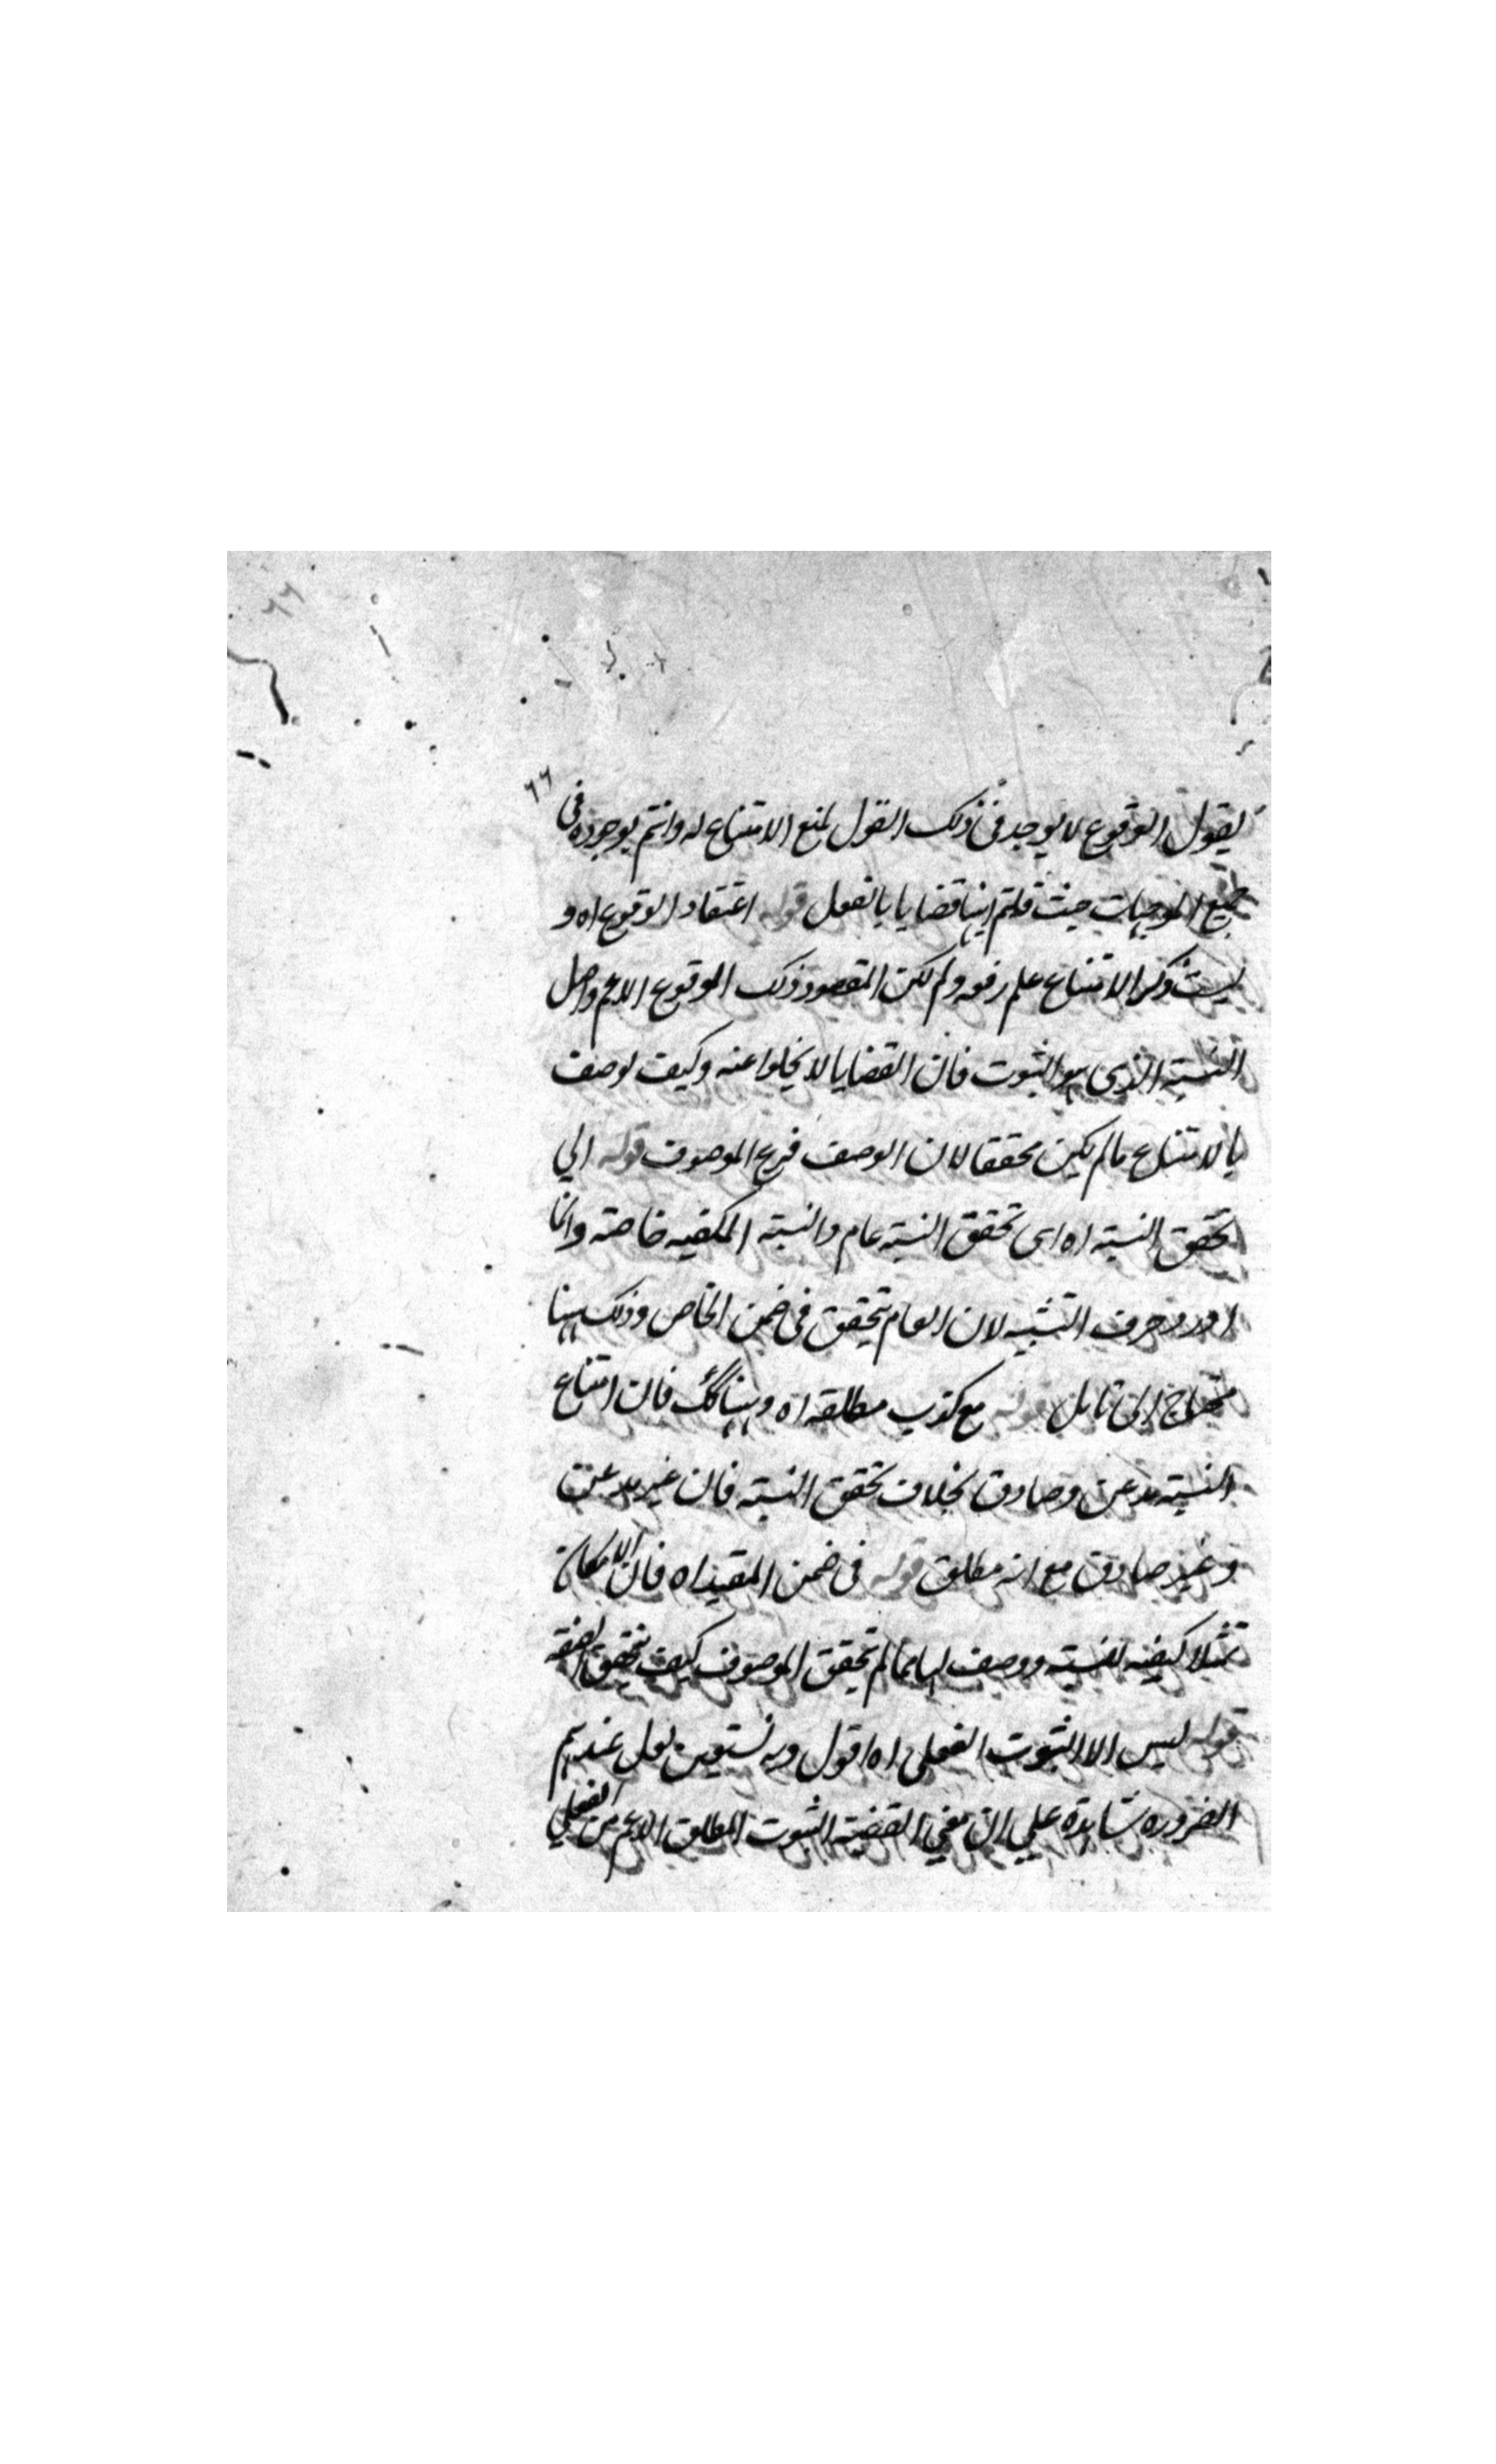 ٦٦
٦٦
يقول الوقوع لا يوجد فى ذلك القول لمنع الامتناع له وانتم بوجوده فى
جميع الموجهات حيث قلتم انها قضايا بالفعل قوله اعتقاد الوقوع اه و
ذكر الامتناع علم رفعه ولم لكن المقصود ذلك الوقوع الاعم واصل
النسبة الذى هو الثبوت فان القضايا لا يخلوا عنه وكيف توصف
بالامتناع مالم يكن محققا لان الوصف فرع الموصوف قوله الى
تحقق النسبة اه اى تحقق النسبة عام والنسبة المكيفيه خاصة وانما
اورد حرف التشبيه لان العام يتحقق فى ضمن الخاص وذلك ههنا
محتاج الى تامل قوله مع كذب مطلقه اه وههنا كك فان امتناع
النسبة مذعن وصادق بخلاف تحقق النسبة فان غير مذعن
وغير صادق مع انه مطلق قوله فى ضمن المقيد اه فان الامكان
مثلا كيفيه للنسبة ووصف لها فمالم يتحقق الموصوف كيف يتحقق الصفة
قوله ليس الا الثبوت الفعلى اه اقول وبه نستعين لعل عندهم
الضروره شاهدة على ان معنى القضية الثبوت المطلق الاعم من الفعلي